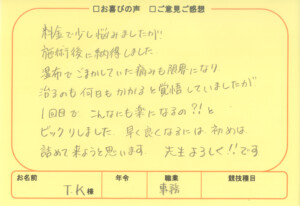 □お喜びの声 □ご意見ご感想
料金で少し悩みましたが
施術後に納得しました
湿布でごまかしていた痛みも限界になり
治るのも何日もかかると覚悟していましたが
1回目で こんなにも楽になるの?!と
ビックリしました 早く良くなるには、初めは
詰めて来ようと思います 先生よろしく!!です
お名前 年令 職業 競技種目
T.K 様 事務